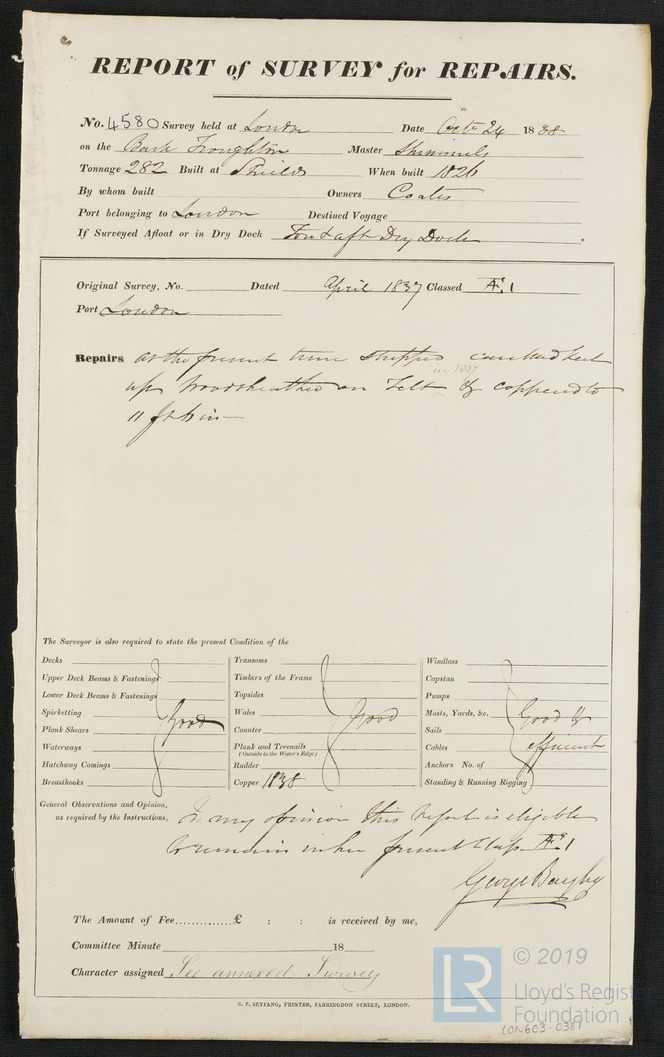 REPORT of SURVEY for REPAIRS.
No. 4580 Survey held at London Date Octr 24 1838
on the Bark Troughton Master
Tonnage 282 Built at Shields When built 1826
By whom built Owners Coates
Port belonging to London Destined Voyage
If Surveyed Afloat or in Dry Dock Fore & aft Dry Dock
Original Survey, No. Dated April 1837 Classed Æ.1
Port London
Repairs at the present time stripped caulked
in 1837
up Woodsheathed on Felt & coppered to
11 ft 6 in
The Surveyor is also required to state the present Condition of the
Decks
Upper Deck Beams & Fastenings
Lower Deck Beams & Fastenings
Spirketting
Plank Shears
Waterways
Hatchway Comings
Breasthooks
Good
Transoms
Timbers of the Frame
Topsides
Wales
Counter
Plank and Treenails
(Outside to the Water's Edge)
Rudder
Copper 1838
Good
Windlass
Capstan
Pumps
Masts, Yards, &c.
Sails
Cables
Anchors No. of
Standing & Running Rigging
Good &
efficient
General Observations and Opinion,
as required by the Instructions,
In my opinion this Vessel is eligible
to remain in her present Class Æ.1
George Bayley
The Amount of Fee.............£ : : is received by me,
Committee Minute 18
Character assigned See annexed Survey
C. F. SEYFANG, PRINTER, FARRINGDON STREET, LONDON.
LR © 2019
Lloyd's Register
Foundation
LON603-0381